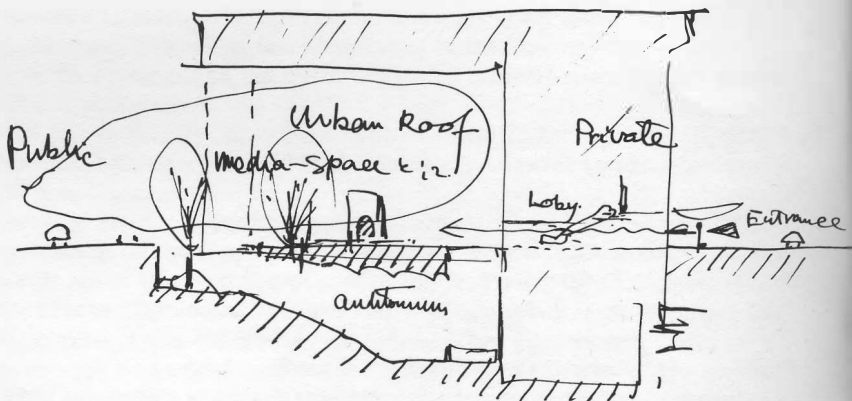 Public
Urban Roof
media-space
Private
Loby.
Entrance
auditorium